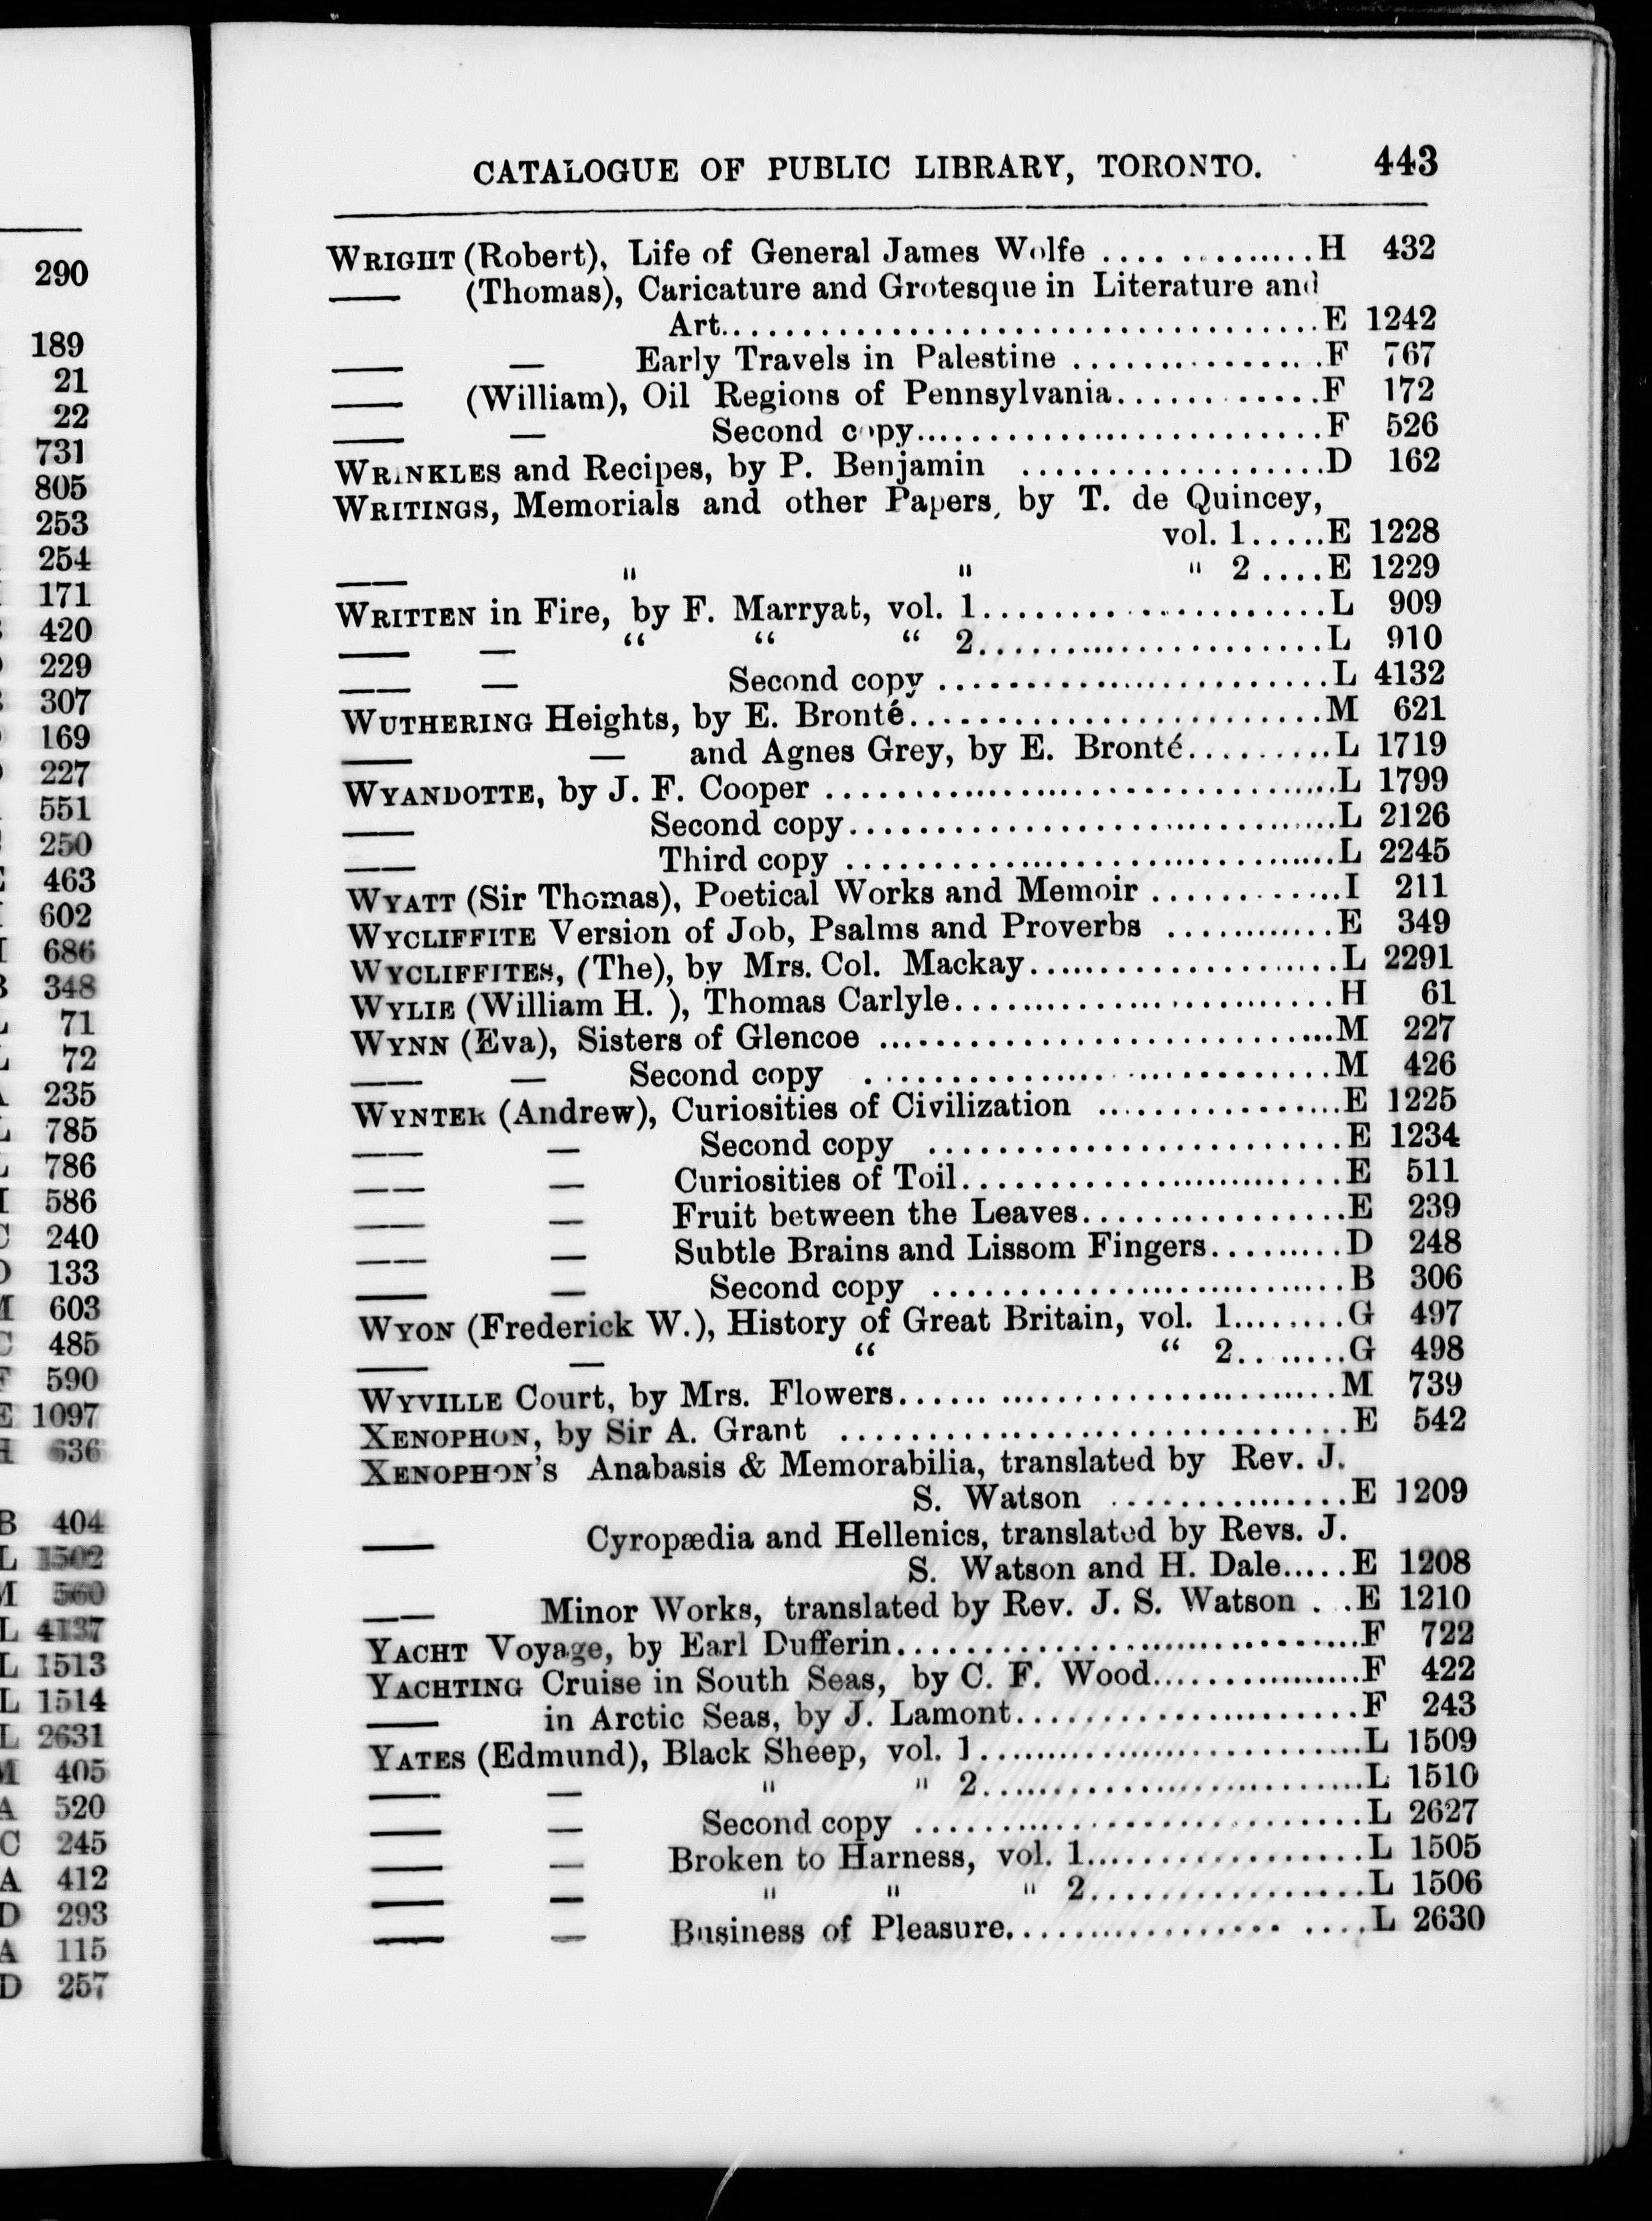 CATALOGUE OF PUBLIC LIBRARY, TORONTO. 443
WRIGHT (Robert), Life of General James Wolfe .... H 432
—— (Thomas), Caricature and Grotesque in Literature and
Art.... E 1242
—— — Early Travels in Palestine .... F 767
—— (William), Oil Regions of Pennsylvania.... F 172
—— — Second copy.... F 526
WRINKLES and Recipes, by P. Benjamin .... D 162
WRITINGS, Memorials and other Papers, by T. de Quincey,
vol. 1.....E 1228
—— " " " 2....E 1229
WRITTEN in Fire, by F. Marryat, vol. 1.... L 909
—— — “ “ “ 2.... L 910
—— — Second copy .... L 4132
WUTHERING Heights, by E. Bronté.... M 621
—— — and Agnes Grey, by E. Bronté.... L 1719
WYANDOTTE, by J. F. Cooper .... L 1799
—— Second copy.... L 2126
—— Third copy .... L 2245
WYATT (Sir Thomas), Poetical Works and Memoir .... I 211
WYCLIFFITE Version of Job, Psalms and Proverbs .... E 349
WYCLIFFITES, (The), by Mrs. Col. Mackay.... L 2291
WYLIE (William H. ), Thomas Carlyle.... H 61
WYNN (Eva), Sisters of Glencoe .... M 227
—— — Second copy .... M 426
WYNTER (Andrew), Curiosities of Civilization .... E 1225
—— — Second copy .... E 1234
—— — Curiosities of Toil.... E 511
—— — Fruit between the Leaves.... E 239
—— — Subtle Brains and Lissom Fingers.... D 248
—— — Second copy .... B 306
WYON (Frederick W.), History of Great Britain, vol. 1.... G 497
—— — “ “ 2.... G 498
WYVILLE Court, by Mrs. Flowers.... M 739
XENOPHON, by Sir A. Grant .... E 542
XENOPHON'S Anabasis & Memorabilia, translated by Rev. J.
S. Watson .... E 1209
—— Cyropædia and Hellenics, translated by Revs. J.
S. Watson and H. Dale.....E 1208
—— Minor Works, translated by Rev. J. S. Watson . . .E 1210
YACHT Voyage, by Earl Dufferin.... F 722
YACHTING Cruise in South Seas, by C. F. Wood.... F 422
—— in Arctic Seas, by J. Lamont.... F 243
YATES (Edmund), Black Sheep, vol. 1.... L 1509
—— — " " 2.... L 1510
—— — Second copy .... L 2627
—— — Broken to Harness, vol. 1.... L 1505
—— — " " " 2.... L 1506
—— — Business of Pleasure.... L 2630
290
189
21
22
731
805
253
254
171
420
229
307
169
227
551
250
463
602
686
348
71
72
235
785
786
586
240
133
603
485
590
E 1097
H 636
B 404
L 1502
M 560
L 4137
L 1513
L 1514
L 2631
M 405
A 520
C 245
A 412
D 293
A 115
D 257